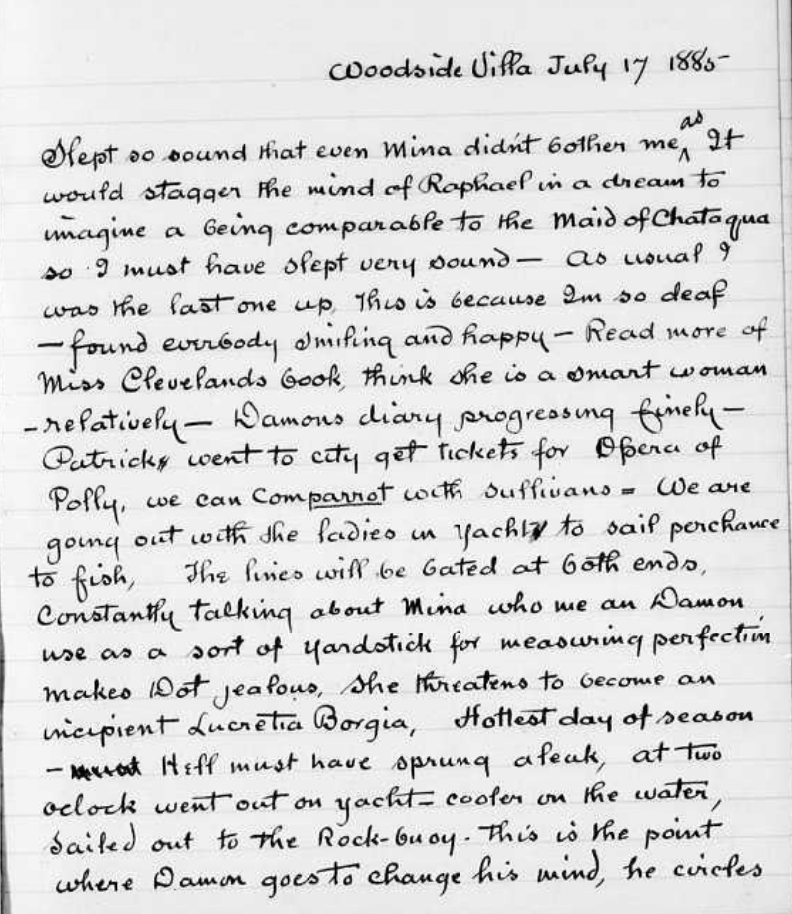 Woodside Villa July 17 1885
Slept so sound that even Mina didn't bother me, as It
would stagger the mind of Raphael in a dream to
imagine a being comparable to the Maid of Chataqua
so I must have slept very sound — As usual I
was the last one up, This is because Im so deaf
— found everbody smiling and happy — Read more of
Miss Clevelands book, think she is a smart woman
— relatively — Damons diary progressing finely —
Patrick went to city get tickets for Opera of
Polly, we can Comparrot with Sullivans = We are
going out with the ladies in yacht to sail perchance
to fish, The lines will be bated at both ends,
Constantly talking about Mina who me an Damon
use as a sort of yardstick for measuring perfection
makes Dot jealous, She threatens to become an
incipient Lucretia Borgia, Hottest day of season
— Hell must have sprung aleak, at two
oclock went out on yacht = cooler on the water,
sailed out to the Rock-buoy. This is the point
where Damon goes to change his mind, he circles